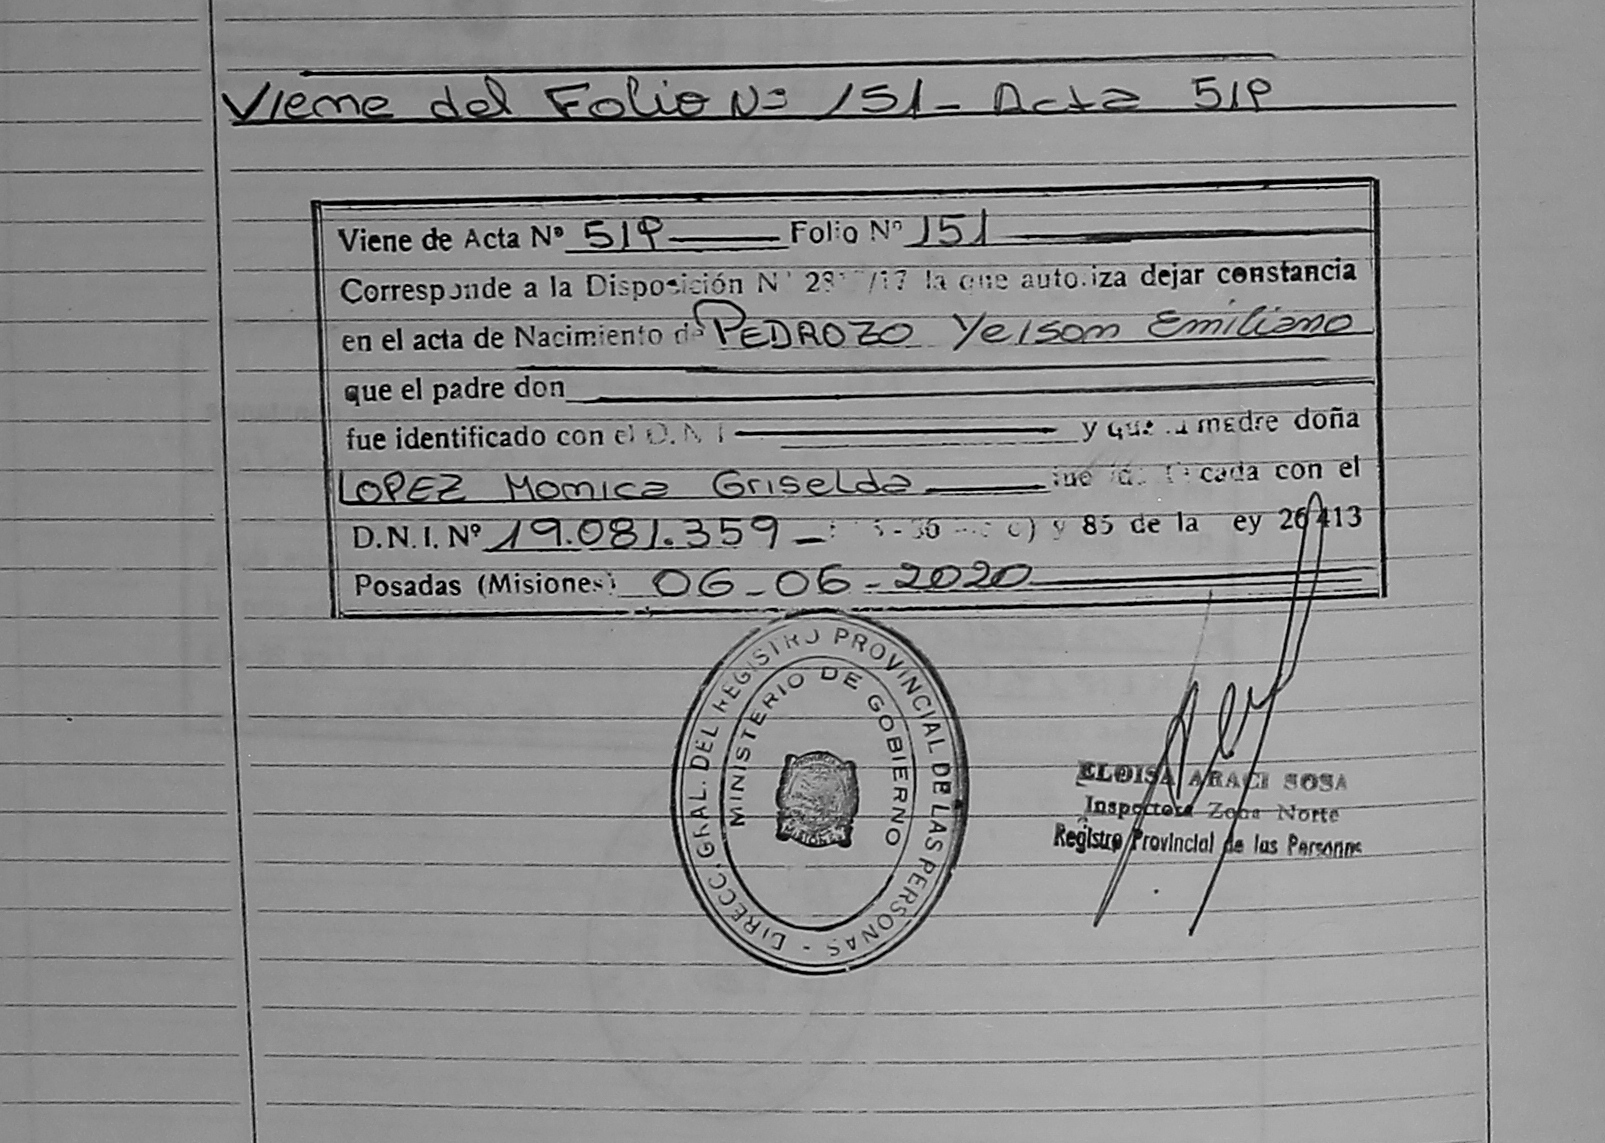 Viene del Folio Nº 151 - Acta 519
Viene de Acta Nº 519 Folio Nº 151
Corresponde a la Disposición N° /17 la que autoriza dejar constancia
en el acta de Nacimiento de PEDROZO Yeison Emiliano
que el padre don
fue identificado con el D.N.I y que la madre doña
LOPEZ Monica Griselda fue identificada con el
D.N.I. Nº 19.081.359 - c) y 85 de la ey 26413
Posadas (Misiones) 06-06-2020
DIRECC. GRAL. DEL REGISTRO PROVINCIAL DE LAS PERSONAS -
MINISTERIO DE GOBIERNO
MISIONES
ELOISA ARACI SOSA
Inspectora Zona Norte
Registro Provincial de las Personas